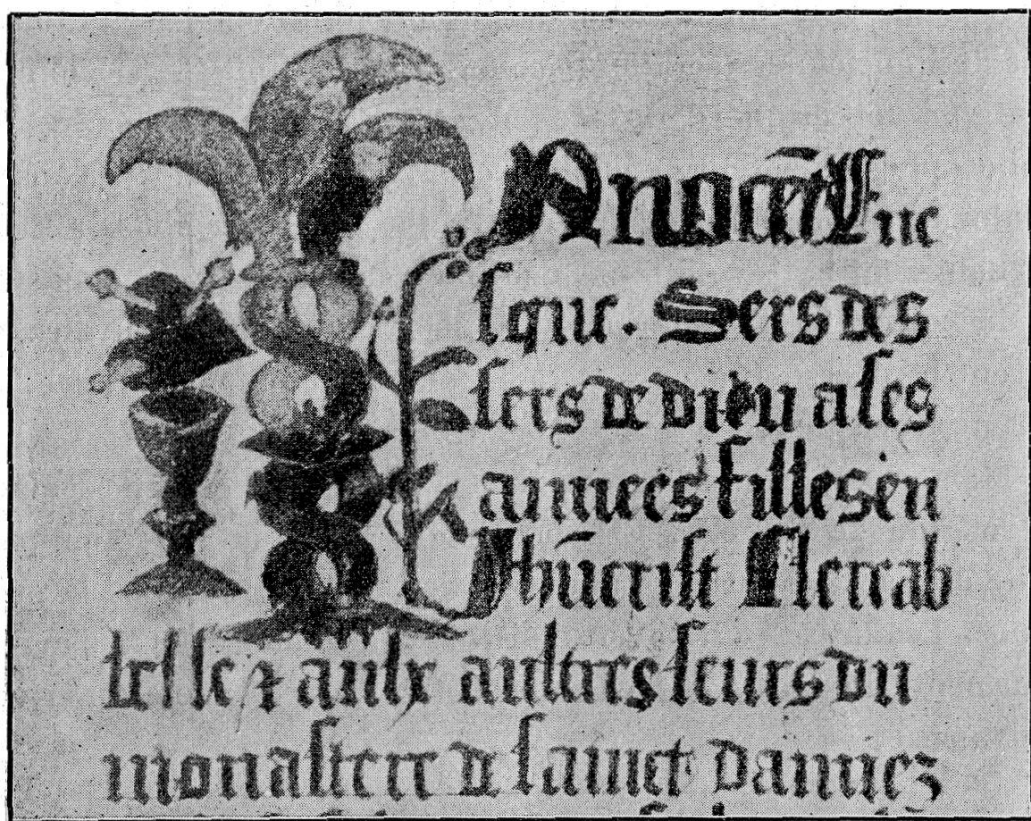 Innocēt Eue
sque. Sers des
sers de dieu a ses
amees filles en
Jhūcrist Clere ab
besse & aulx aultres seurs du
monastere de sainct damiez